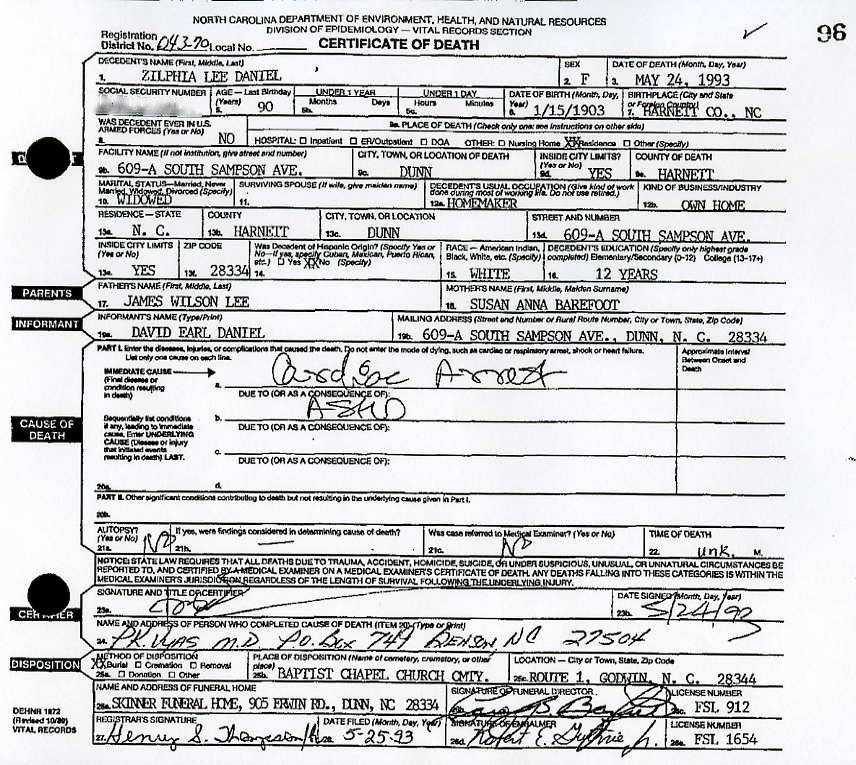 NORTH CAROLINA DEPARTMENT OF ENVIRONMENT, HEALTH, AND NATURAL RESOURCES
DIVISION OF EPIDEMIOLOGY — VITAL RECORDS SECTION
96
Registration District No. 043-70 Local No.
CERTIFICATE OF DEATH
DECEDENT'S NAME (First, Middle, Last) SEX DATE OF DEATH (Month, Day, Year)
1. ZILPHIA LEE DANIEL 2. F 3. MAY 24, 1993
SOCIAL SECURITY NUMBER AGE — Last Birthday (Years) UNDER 1 YEAR UNDER 1 DAY DATE OF BIRTH (Month, Day, Year) BIRTHPLACE (City and State or Foreign Country)
5. 90 5b. Months Days 5c. Hours Minutes 6. 1/15/1903 7. HARNETT CO., NC
WAS DECEDENT EVER IN U.S. ARMED FORCES? (Yes or No) 9a. PLACE OF DEATH (Check only one: see instructions on other side)
8. NO HOSPITAL: ☐ Inpatient ☐ ER/Outpatient ☐ DOA OTHER: ☐ Nursing Home XX Residence ☐ Other (Specify)
FACILITY NAME (If not institution, give street and number) CITY, TOWN, OR LOCATION OF DEATH INSIDE CITY LIMITS? (Yes or No) COUNTY OF DEATH
9b. 609-A SOUTH SAMPSON AVE. 9c. DUNN 9d. YES 9e. HARNETT
MARITAL STATUS—Married, Never Married, Widowed, Divorced (Specify) SURVIVING SPOUSE (If wife, give maiden name) DECEDENT'S USUAL OCCUPATION (Give kind of work done during most of working life. Do not use retired.) KIND OF BUSINESS/INDUSTRY
10. WIDOWED 11. 12a. HOMEMAKER 12b. OWN HOME
RESIDENCE — STATE COUNTY CITY, TOWN, OR LOCATION STREET AND NUMBER
13a. N. C. 13b. HARNETT 13c. DUNN 13d. 609-A SOUTH SAMPSON AVE.
INSIDE CITY LIMITS (Yes or No) ZIP CODE Was Decedent of Hispanic Origin? (Specify Yes or No—If yes, specify Cuban, Mexican, Puerto Rican, etc.) ☐ Yes XX No (Specify) RACE — American Indian, Black, White, etc. (Specify) DECEDENT'S EDUCATION (Specify only highest grade completed) Elementary/Secondary (0-12) College (13-17+)
13e. YES 13f. 28334 14. 15. WHITE 16. 12 YEARS
PARENTS
FATHER'S NAME (First, Middle, Last) MOTHER'S NAME (First, Middle, Maiden Surname)
17. JAMES WILSON LEE 18. SUSAN ANNA BAREFOOT
INFORMANT
INFORMANT'S NAME (Type/Print) MAILING ADDRESS (Street and Number or Rural Route Number, City or Town, State, Zip Code)
19a. DAVID EARL DANIEL 19b. 609-A SOUTH SAMPSON AVE., DUNN, N. C. 28334
PART I. Enter the diseases, injuries, or complications that caused the death. Do not enter the mode of dying, such as cardiac or respiratory arrest, shock or heart failure.
List only one cause on each line.
Approximate Interval Between Onset and Death
IMMEDIATE CAUSE (Final disease or condition resulting in death)
a. Cardiac Arrest
DUE TO (OR AS A CONSEQUENCE OF):
CAUSE OF DEATH
Sequentially list conditions if any, leading to immediate cause. Enter UNDERLYING CAUSE (Disease or injury that initiated events resulting in death) LAST.
b. ASHD
DUE TO (OR AS A CONSEQUENCE OF):
c.
DUE TO (OR AS A CONSEQUENCE OF):
20a. d.
PART II. Other significant conditions contributing to death but not resulting in the underlying cause given in Part I.
20b.
AUTOPSY? (Yes or No) If yes, were findings considered in determining cause of death? Was case referred to Medical Examiner? (Yes or No) TIME OF DEATH
21a. No 21b. — 21c. No 22. unk. M.
NOTICE: STATE LAW REQUIRES THAT ALL DEATHS DUE TO TRAUMA, ACCIDENT, HOMICIDE, SUICIDE, OR UNDER SUSPICIOUS, UNUSUAL, OR UNNATURAL CIRCUMSTANCES BE
REPORTED TO, AND CERTIFIED BY A MEDICAL EXAMINER ON A MEDICAL EXAMINER'S CERTIFICATE OF DEATH. ANY DEATHS FALLING INTO THESE CATEGORIES IS WITHIN THE
MEDICAL EXAMINER'S JURISDICTION REGARDLESS OF THE LENGTH OF SURVIVAL FOLLOWING THE UNDERLYING INJURY.
CERTIFIER
SIGNATURE AND TITLE OF CERTIFIER DATE SIGNED (Month, Day, Year)
23a. 23b. 5/24/93
NAME AND ADDRESS OF PERSON WHO COMPLETED CAUSE OF DEATH (ITEM 20) (Type or Print)
24. P.K. Vyas M.D P.O. Box 749 Benson NC 27504
DISPOSITION
METHOD OF DISPOSITION PLACE OF DISPOSITION (Name of cemetery, crematory, or other place) LOCATION — City or Town, State, Zip Code
XX Burial ☐ Cremation ☐ Removal
25a. ☐ Donation ☐ Other 25b. BAPTIST CHAPEL CHURCH CMTY. 25c. ROUTE 1, GODWIN, N. C. 28344
NAME AND ADDRESS OF FUNERAL HOME SIGNATURE OF FUNERAL DIRECTOR LICENSE NUMBER
26a. SKINNER FUNERAL HOME, 905 ERWIN RD., DUNN, NC 28334 26c. FSL 912
DEHNR 1872
(Revised 10/89)
VITAL RECORDS
REGISTRAR'S SIGNATURE DATE FILED (Month, Day, Year) SIGNATURE OF EMBALMER LICENSE NUMBER
27. Henry S. Thompson 28. 5-25-93 26d. Robert E. Guthrie Jr. 26e. FSL 1654